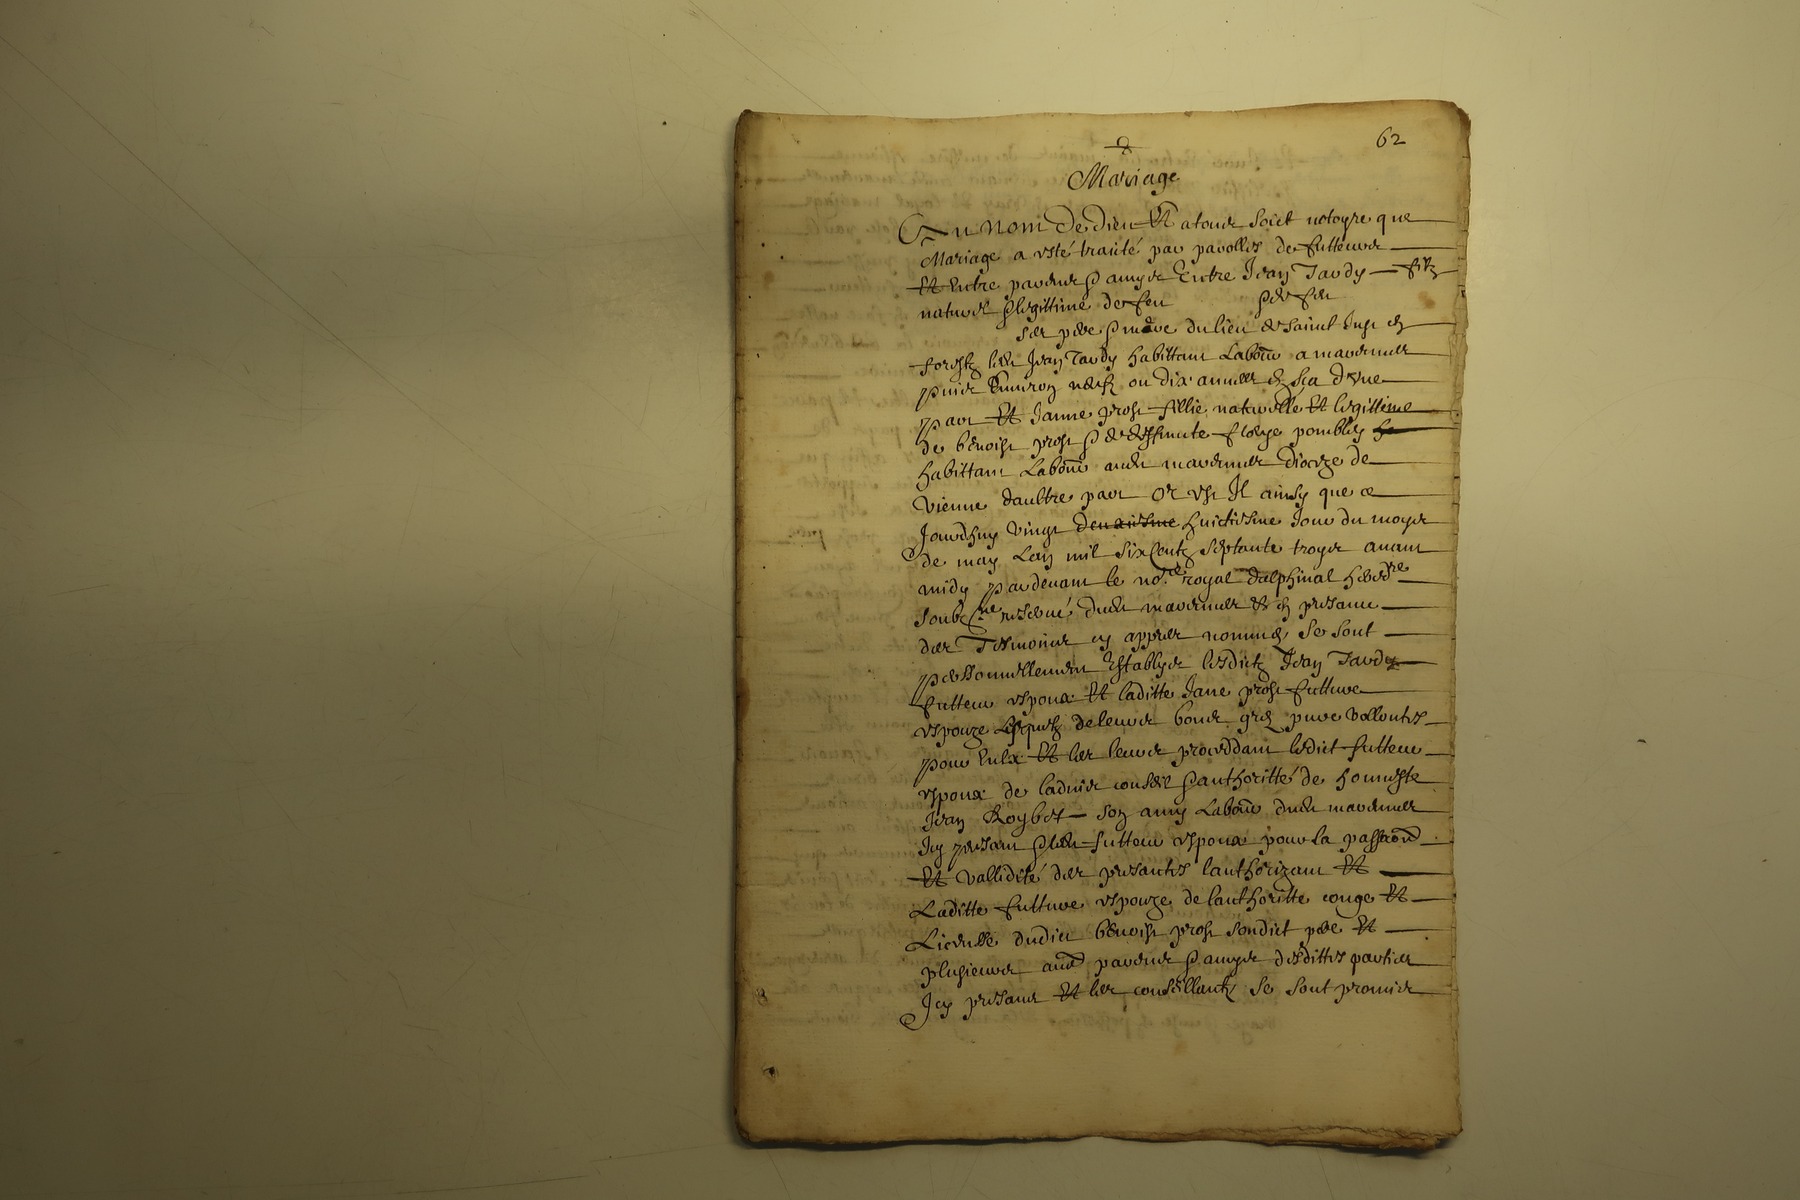 62
Mariage
Au nom de dieu Et a tous soict notoyre que
Mariage a esté traitté par parolles de futteur
Et Entre parens & amys Entre Jean Tardy filz
naturel & legittime de feu & de feu
ses pere & mere du lieu de saint Just en
forestz led Jean Tardy habittant Labor a
puis Environ neuf ou dix annees en sca d'vne
part Et Janne prost fillie naturelle Et legittime
de benoist prost & de deffunte
habittant Labor aud dioceze de
vienne daultre part Or est Il ainsy que ce
Jourdhuy vingt deuxiesme huictiesme Jour du moys
de may Lan mil six Centz septante troys auant
midy pardeuant le no.re royal dalphinal hered.re
soub.ne reserué dud & en presance
des Tesmoins cy appres nommés se sont
personnellement Establys lesdictz Jean Tardy
futteur espoux Et laditte Jane prost futture
espouze Lesquelz de leurs bons grés pure vollontés
pour Eulx Et les leurs proceddant ledict futteur
espoux de laduis conseil & authoritté de honneste
Jean Roybet son amy Labor dud
Icy presant & led futteur espoux pour la
Et vallidité des presantes lauthorizant Et
Laditte futture espouze de lauthoritte conge Et
Licensse dudict benoist prost sondict pere Et
plusieurs aud parens & amys desdittes parties
Icy presant Et les conseillantz se sont promis